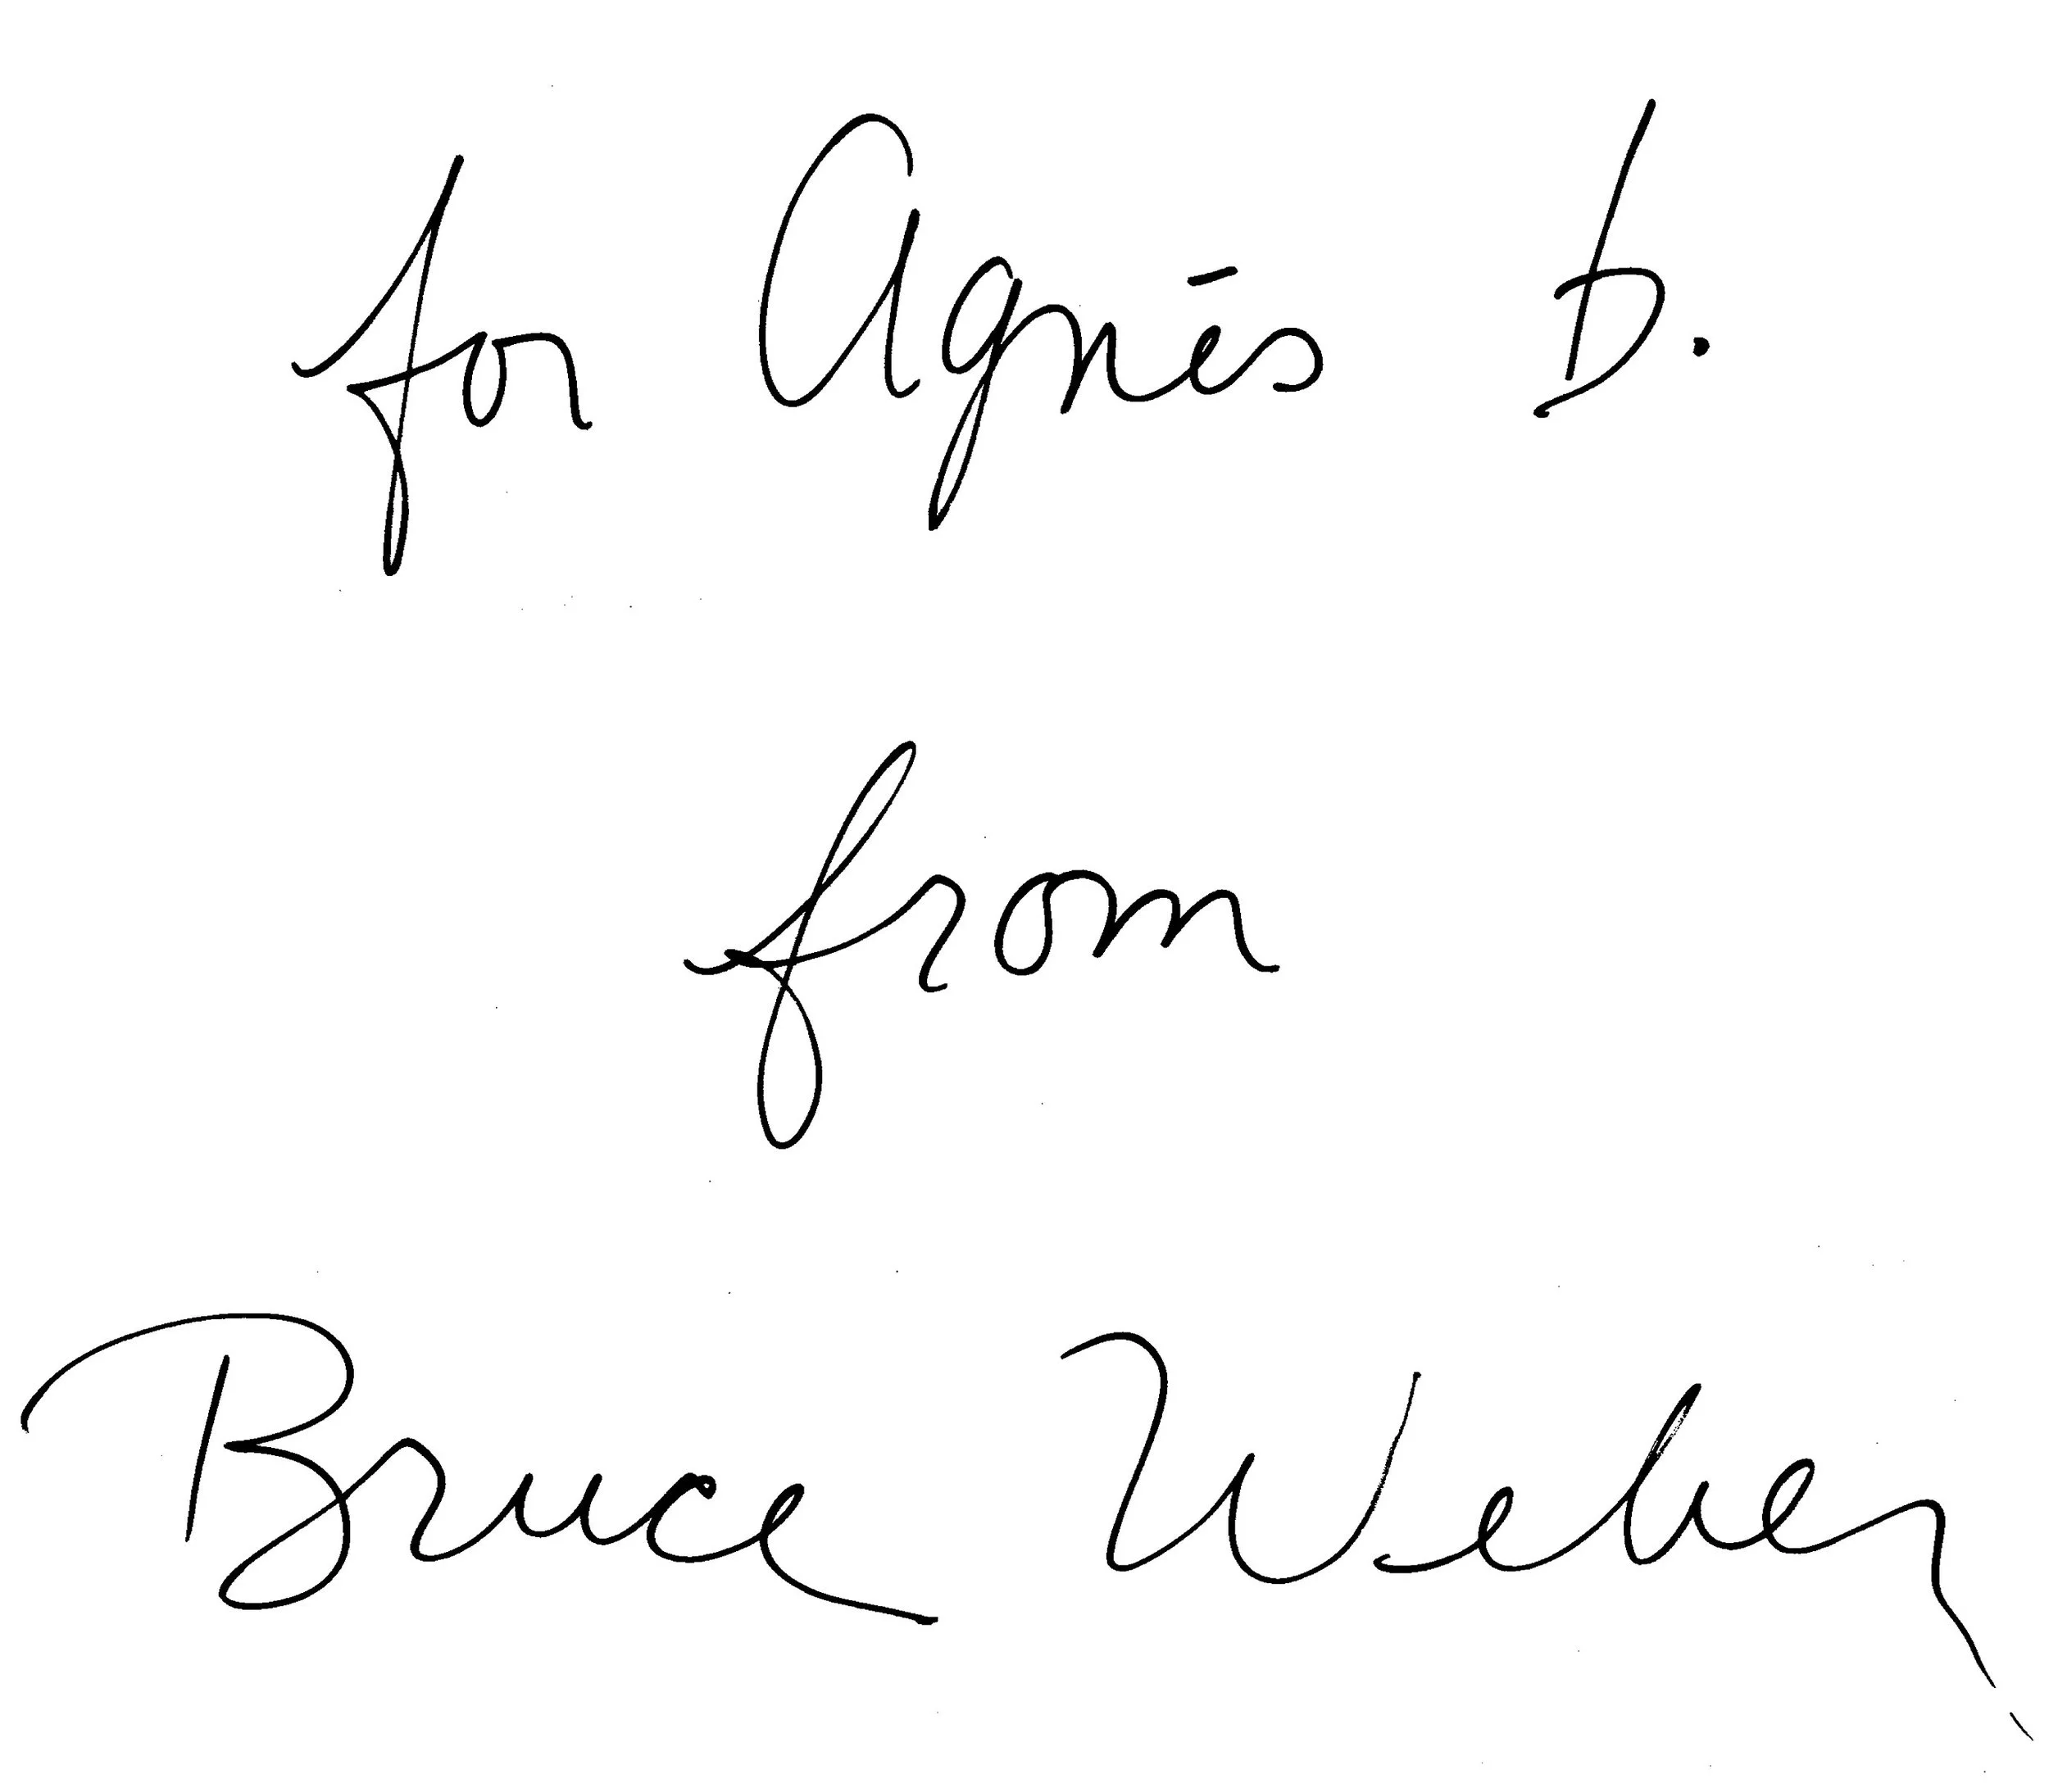 for Agnès b.
from
Bruce Weber